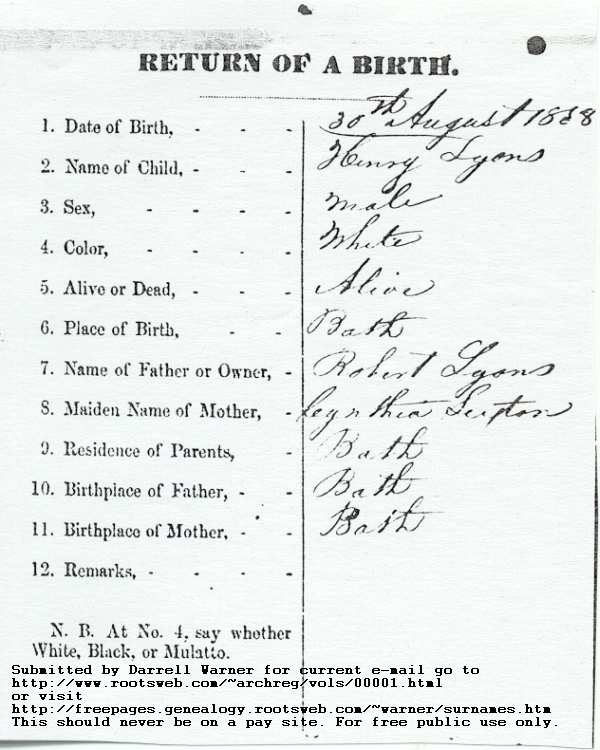 RETURN OF A BIRTH.
1. Date of Birth, - - - 30th August 1858
2. Name of Child, - - - Henry Lyons
3. Sex, - - - - Male
4. Color, - - - - White
5. Alive or Dead, - - - Alive
6. Place of Birth, - - Bath
7. Name of Father or Owner, - Robert Lyons
8. Maiden Name of Mother, - Cynthia Sexton
9. Residence of Parents, - Bath
10. Birthplace of Father, - - Bath
11. Birthplace of Mother, - - Bath
12. Remarks, - - - -
N. B. At No. 4, say whether
White, Black, or Mulatto.
Submitted by Darrell Warner for current e-mail go to
http://www.rootsweb.com/~archreg/vols/00001.html
or visit
http://freepages.genealogy.rootsweb.com/~warner/surnames.htm
This should never be on a pay site. For free public use only.